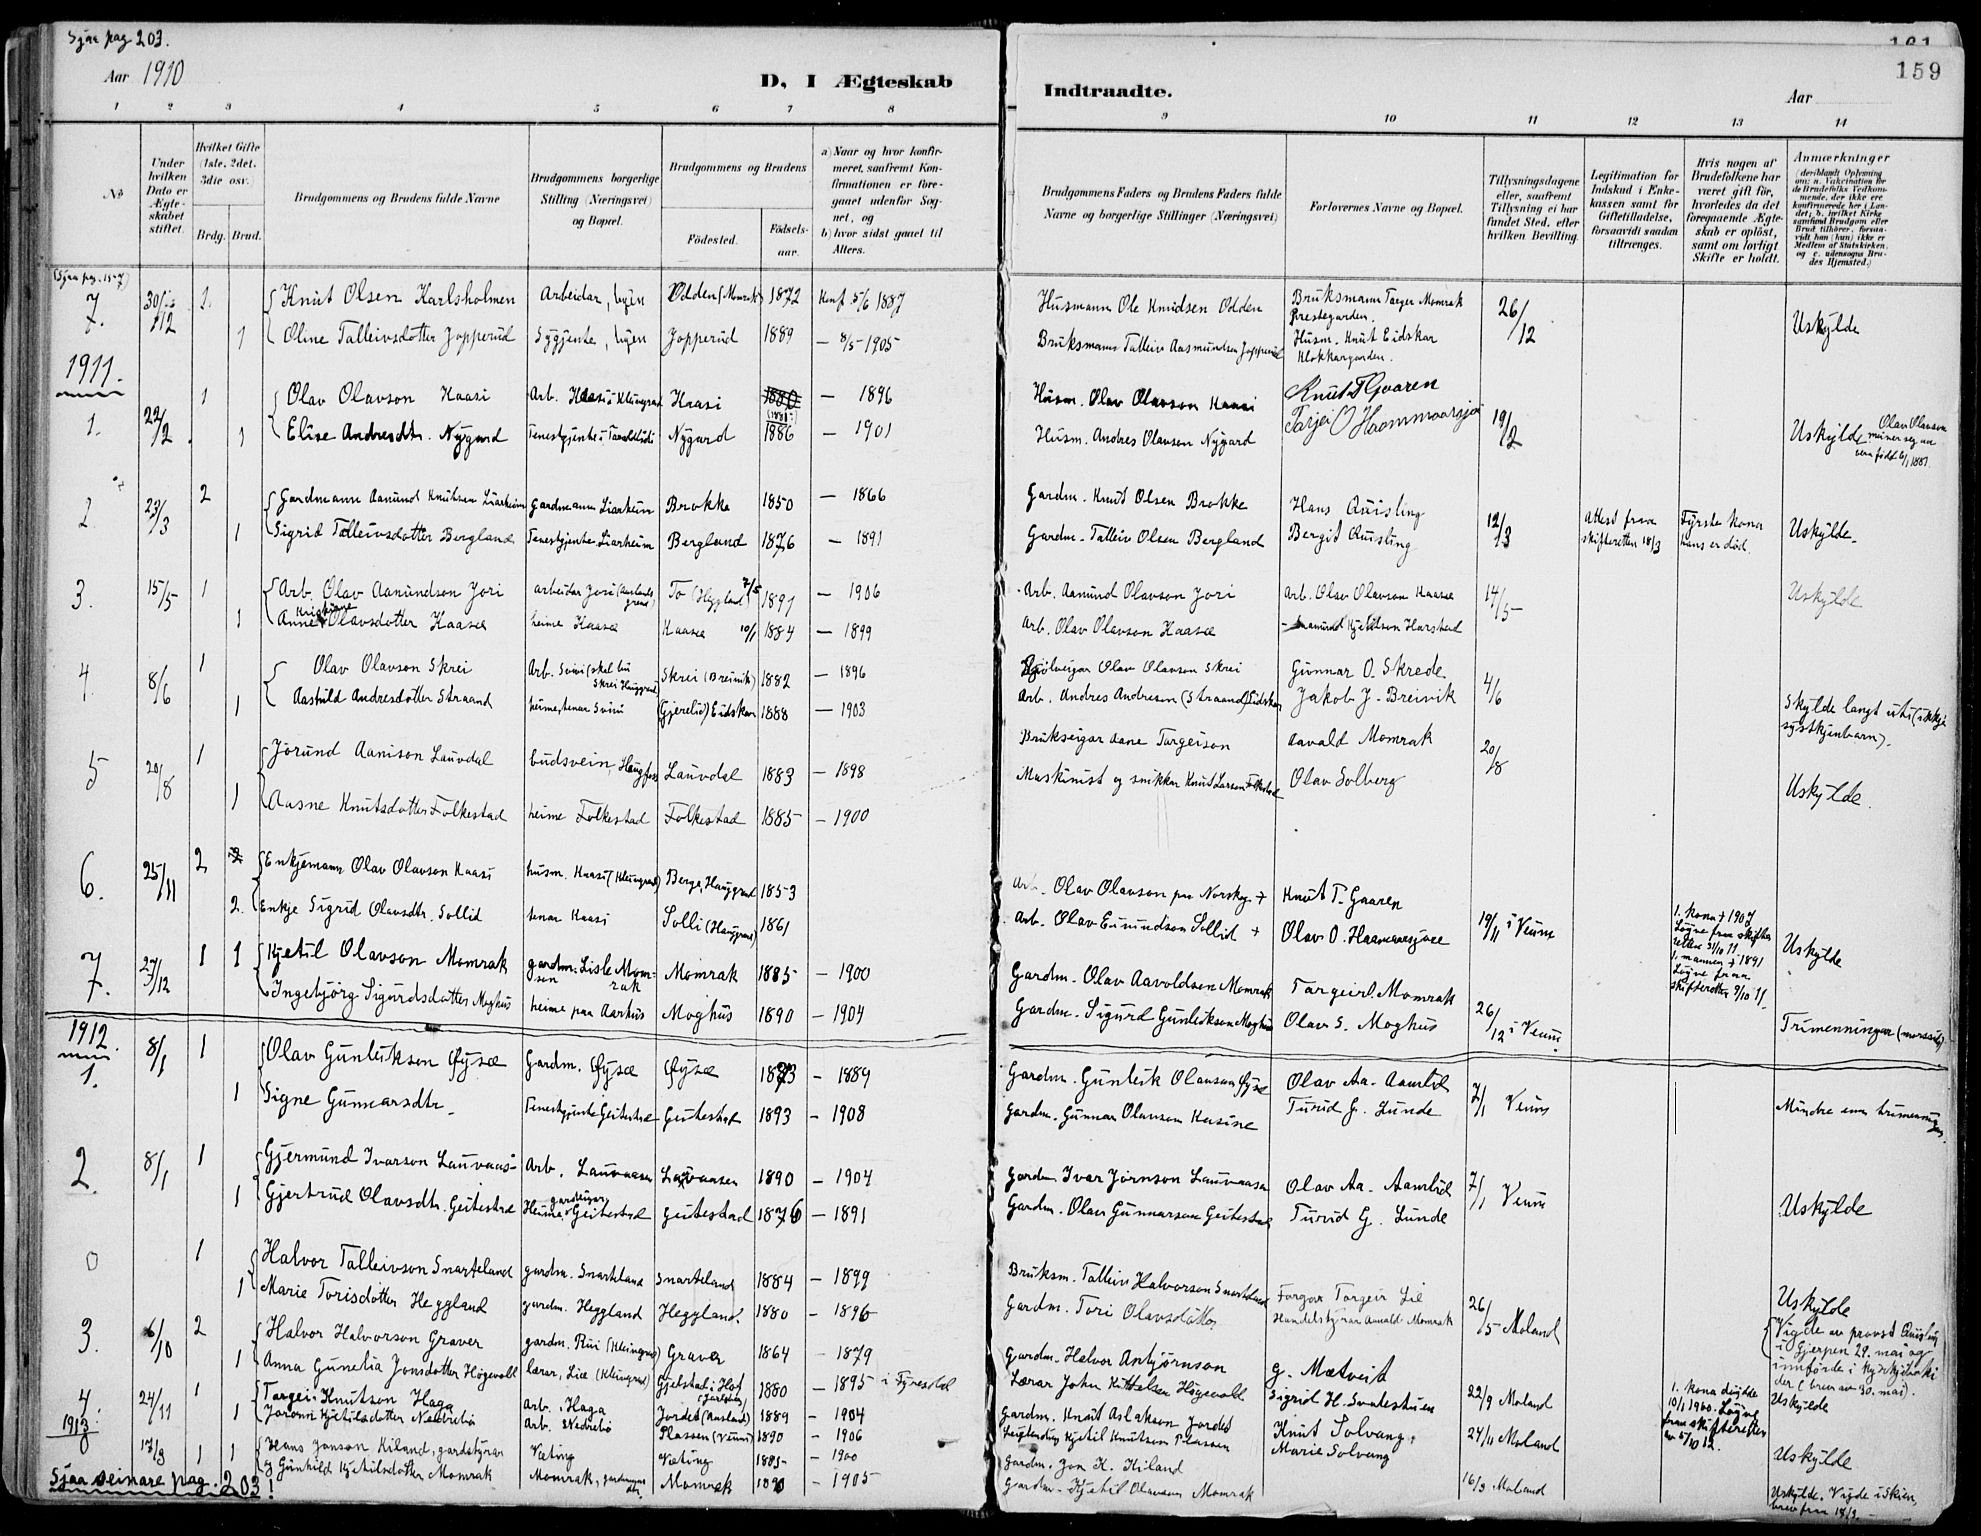 Sjaa pag 203.
161
159
Aar 1910
D, I Ægteskab
Indtraadte.
Aar
1 2 3 4 5 6 7 8
9 10 11 12 13 14
No
Under hvilken Dato er Ægteskabet stiftet.
Hvilket Gifte (1ste, 2det, 3die osv.)
Brdg. Brud.
Brudgommens og Brudens fulde Navne
Brudgommens borgerlige Stilling (Næringsvei) og Bopæl.
Brudgommens og Brudens
Fødested.
Fødselsaar.
a) Naar og hvor konfirmeret, saafremt Konfirmationen er foregaaet udenfor Sognet, og
b) hvor sidst gaaet til Alters.
Brudgommens Faders og Brudens Faders fulde Navne og borgerlige Stillinger (Næringsvei)
Forlovernes Navne og Bopæl.
Tillysningsdagene eller, saafremt Tillysning ei har fundet Sted, efter hvilken Bevilling.
Legitimation for Indskud i Enkekassen samt for Giftetilladelse, forsaavidt saadan tiltrænges.
Hvis nogen af Brudefolkene har været gift før, hvorledes da det foregaaende Ægteskab er opløst, samt om lovligt Skifte er holdt.
Anmærkninger
(deriblandt Oplysning om: a. Vakcination for de Brudefolks Vedkommende, der ikke ere konfirmerede her i Landet; b. hvilket Kirkesamfund Brudgom eller Brud tilhører, forsaavidt han (hun) ikke er Medlem af Statskirken, og c. udensogns Brudes Hjemsted.)
(Sjaa pag. 157)
7. 30/12 1. Knut Olsen Karlsholmen Arbeidar, byen Odden (Momrak) 1872 Konf. 5/6 1887 Husmann Ole Knudsen Odden Bruksmann Targer Momrak Prestegarden. 26/12 Uskylde
1 Oline Talleivsdotter Jopperud Sygjente, byen Jopperud 1889 — 8/5 1905 Bruksmann Talleiv Aasmundsen Jopperud Husm. Knut Eidskar Klokkargarden.
1911.
1. 22/2 1 Olav Olavson Haasi Arb. Haasi i Kleivgrend Haasi 1880 (1881) — 1896 Husm. Olav Olavson Haasi Knut T Gvaren 19/2 Uskylde Olav Olavson meiner seg aa vera født 6/1 1881.
1 Elise Andresdtr. Nygard Tenestgjente i Nygard 1886 — 1901 Husm. Andres Olavsen Nygard Tarjei O Haommaarsjøi
2 23/3 2 Gardmann Aanund Knutsen Liarheim Gardmann Liarheim Brokke 1850 — 1866 Gardm. Knut Olsen Brokke Hans Quisling 12/3 Attest fraa skifteretten 18/3 Fyrste kona hans er død. Uskylde.
1 Sigrid Talleivsdotter Bergland Tenestgjente Liarheim Bergland 1876 — 1891 Gardm. Talleiv Olsen Bergland Bergit Quisling
3. 15/5 1 Arb. Olav Aanundson Jori arbeidar Jori (Auslandsgrend) To (Hegland) 7/5 1891 — 1906 Arb. Aanund Olavson Jori Arb. Olav Olavson Kaasa 14/5 Uskylde
1 Anne Kristine Olavsdotter Kaasa heime Kaasa Kaasa 10/1 1884 — 1899 Arb. Olav Olavson Kaasa Aanund Kjetilson Harstad
4. 8/6 1 Olav Olavson Skrei Arb. Svini (skal bu Skrei Hauggrend) Skrei (Breivik) 1882 — 1896 Sjølveigar Olav Olavson Skrei Gunnar O. Skrede 4/6 Skylde langt ute (ikkje systkjenbarn).
1 Aashild Andresdotter Straand heime, tenar Svini (Gjerelid) Eidskar 1888 — 1903 Arb. Andres Andresen (Straand) Eidskar Jakob J. Breivik
5 20/8 1 Jorund Aanison Lauvdal budsvein, Haugfoss Lauvdal 1883 — 1898 Brukseigar Aane Targeison Aavald Momrak 20/8 Uskylde.
1 Aasne Knutsdotter Folkestad heime Folkestad Folkestad 1885 — 1900 Maskinist og snikkar Knut Larsen Folkestad Olav Solberg
6. 25/11 2 Enkjemann Olav Olavson Haasi husm. Haasi (Kleivgrend) Berge, Hauggrend 1853 Arb. Olav Olavson paa Norskog + Knut T. Gaaren 19/11 i Veum 1. kona + 1907 Løyve fraa skifteretten 31/10 11 1. mannen + 1891 Løyve fraa skifteretten 9/10 11. Uskylde
2. Enkje Sigrid Olavsdtr. Sollid tenar Haasi Solli (Hauggrend) 1861 Arb. Olav Eivindson Sollid + Olav O. Haamaarsjøi
7. 27/12 1 1 Kjetil Olavson Momrak gardm.sson Lisle Momrak Momrak 1885 — 1900 Gardm. Olav Aavoldsen Momrak Targeir O. Momrak 26/12 i Veum. Trimenningar (morssida)
Ingebjørg Sigurdsdotter Moghus heime paa Aarhus Moghus 1890 — 1904 Gardm. Sigurd Gunleiksen Moghus Olav S. Moghus
1912.
1. 8/1 1 Olav Gunleiksen Øysæ Gardm. Øysæ Øysæ 1873 — 1889 Gardm. Gunleik Olavson Øysæ Olav Aa. Aamlid 7/1 Veum Mindre enn trimenningar.
1 Signe Gunnarsdtr. Tenestgjente Geitestad Geitestad 1893 — 1908 Gardm. Gunnar Olavson Turid G. Lunde
2. 8/1 1 Gjermund Ivarson Lauvaas Arb. Lauvaasen Lauvaasen 1890 — 1904 Gardm. Ivar Jørnson Lauvaasen Olav Aa. Aamlid 7/1 Veum Uskylde
1 Gjertrud Olavsdtr. Geitestad Heime gardeigar Geitestad Geitestad 1876 — 1891 Gardm. Olav Gunnarson Geitestad Turid G. Lunde
0 1 Halvor Talleivson Snarteland gardm. Snarteland Snarteland 1884 — 1899 Bruksm. Talleiv Halvorson Snarteland Forgar Torgeir Lie 26/5 Moland Uskylde
1 Marie Torisdotter Heggland gardm. Heggland Heggland. 1880 — 1896 Gardm. Tori Olavsdotter Handelsstyrar Aavald Momrak Vigde av provst Quisling i Gjerpen 29. mai og innførde i kyrkjeboki der (brev av 30. mai).
3. 6/10 2 Halvor Halvorson Graver gardm. Rui (Kleivgrend) Graver 1864 — 1879 Gardm. Halvor Anbjørnson G. Mætveit 22/9 Moland 1. kona døydde 10/1 1910. Løyve fraa skifteretten av 5/10 12. Uskylde
1 Anna Gunelia Jonsdotter Høgevoll lærar, Lia (Kleivgrend) Gjelstad i Hof (Jarlsberg) 1880 — 1895 i Fyresdal Lærar John Kittelsen Høgevold Sigrid H. Svadestuen
4. 24/11 1 Targei Knutson Haga Arb. Haga Jordet (Ausland) 1889 — 1904 Gardm. Knut Aslakson Jordet Knut Solvang. 24/11 Moland Uskylde
1 Joronn Kjetilsdotter Nedrebø Arb. Nedrebø Plassen (Veum) 1890 — 1906 Leiglending Kjetil Knutson Plassen Marie Solvang
1913
0 17/3 1 1 Hans Jonson Kiland, gardstyrar Næting Næting 1885 — 1900 Gardm. Jon H. Kiland 16/3 Moland Uskylde. Vigde i Skien, brev fraa 17/3.
og Gunhild Kjetilsdotter Momrak Momrak, Momrak 1890 — 1905 Gardm. Kjetil Olavson Momrak
Sjaa seinare pag. 203!